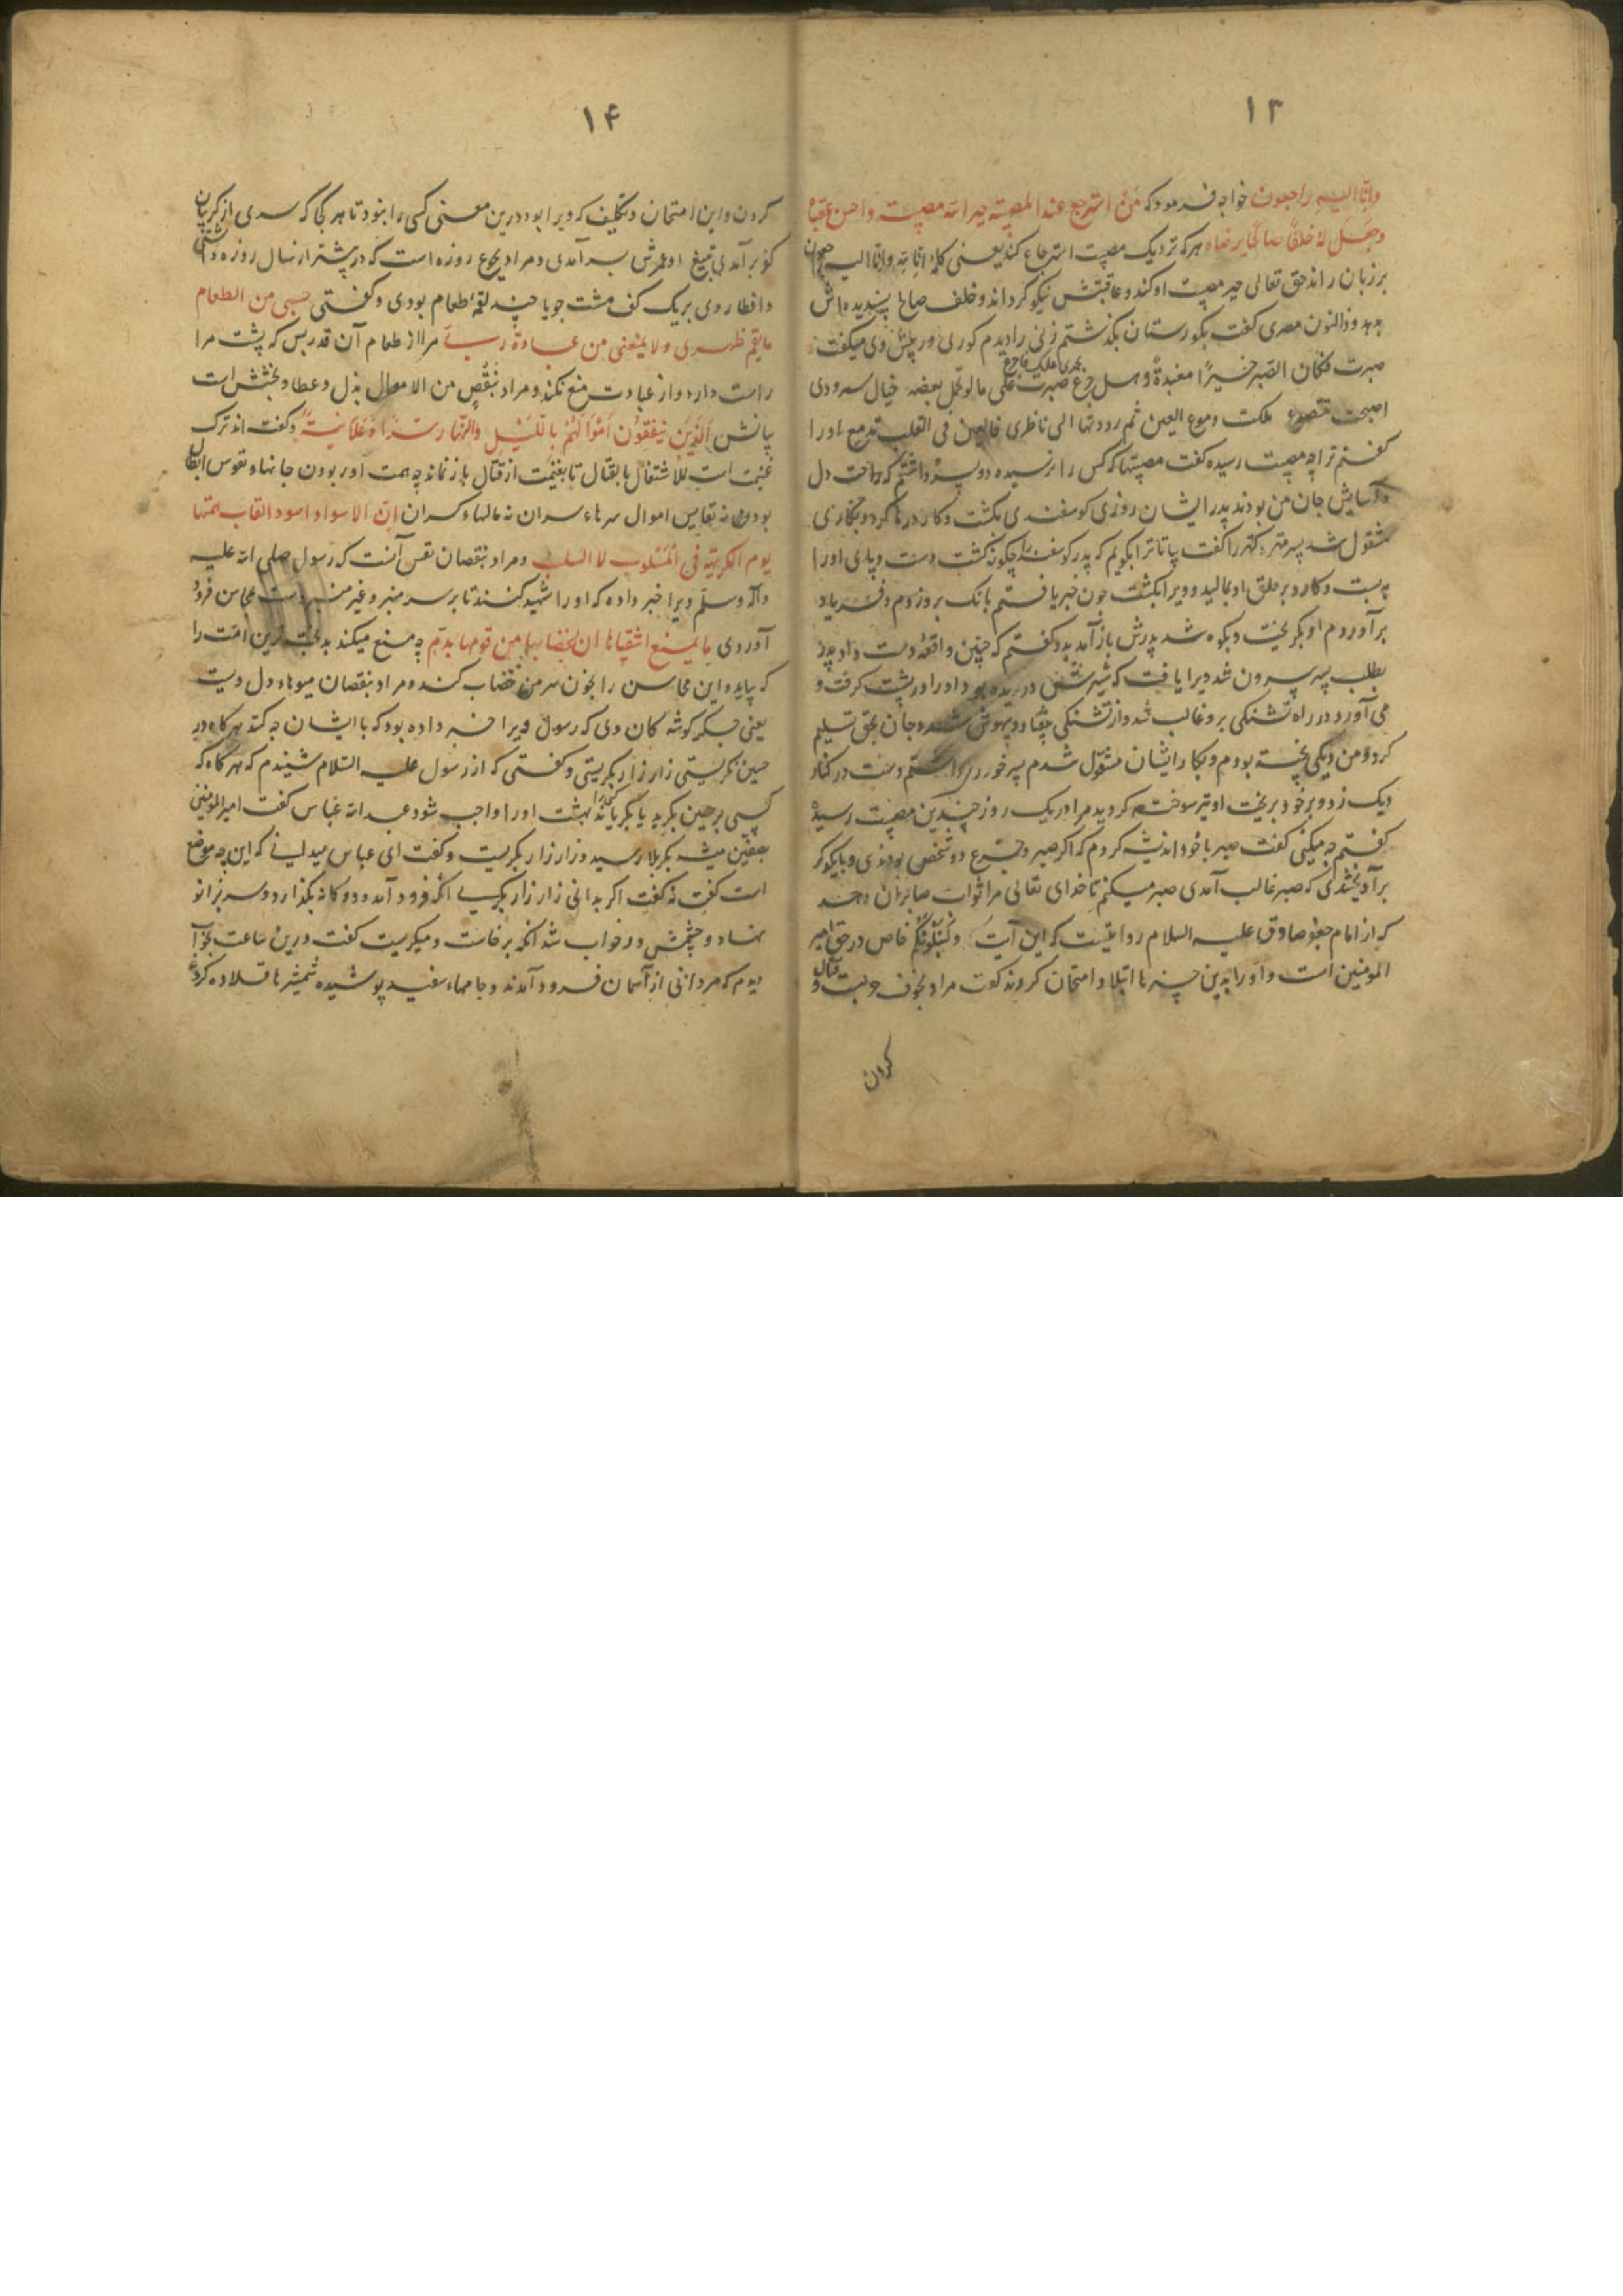 ۱۳
وانا الیه راجعون خواجه فرمود که من استرجع عند المصیبة جبر الله مصیبته واحسن عقباه
وجعل له خلفا صالحا یرضاه هرکه نزدیک مصیبت استرجاع کند یعنی کلمهٔ انا لله وانا الیه راجعون
برزبان راند حق تعالی جبر مصیبت او کند و عاقبتش نیکو گرداند و خلف صالح پسندیده اش
بدهد و ذالنون مصری گفت بگورستان بگذشتم زنی را دیدم گوری در پیش وی میگفت
صبرت فکان الصبر خیرا مغبة وهل جزع صبرت علی مالو تحمل بعضه خیال سرودی
اصبحت تتصدع ملکت دموع العین ثم رددتها الی ناظری فالعین فی القلب تدمع اورا
گفتم ترا چه مصیبت رسیده گفت مصیبتها که کس را نرسیده دو پسر داشتم که راحت دل
و آسایش جان من بودند پدر ایشان روزی گوسفندی بکشت و کارد رها کرد و بکاری
مشغول شد پسر مهتر کهتر را گفت بیا تا ترا بگویم که پدر گوسفند را چگونه کشت دست و پای اورا
بربست و کارد بر حلق او بمالید و ویرا بکشت چون خبر یافتم بانگ بروزدم و فریاد
برآوردم او بگریخت و بکوه شد پدرش بازآمد بدو گفتم که چنین واقعهٔ دست داد پدر
بطلب پسر بیرون شد ویرا یافت که شیرش دریده بود اورا در پشت گرفت و
می آورد در راه تشنگی برو غالب شد و از تشنگی بیفتاد و بیهوش شد و جان بحق تسلیم
کرد و من دیگی پخته بودم و بکار ایشان مشغول شدم پسر خورد را داشتم دست در کنار
دیک زد و برخود بریخت او نیز سوخته گردید مرا در یک روز چندین مصیبت رسید
گفتم چه میکنی گفت صبر با خود اندیشه کردم که اگر صبر و جزع دو شخص بودندی و با یکدیگر
برآویختندی که صبر غالب آمدی صبر میکنم تا خدای تعالی مرا ثواب صابران دهد
که از امام جعفر صادق علیه السلام روایتست که این آیت ولنبلونکم خاص در حق امیر
المومنین است و اورا بدین چیزها ابتلا و امتحان کردند گفت مراد بخوف حربست و قتال
کردن
۱۴
کردن و این امتحان و تکلیف که ویرا بود درین معنی کسی را نبود تا هر کجا که سری از گریبان
کفر برآمدی بتیغ او عمرش بسر آمدی و مراد بجوع روزه است که در بیشتر از سال روزه داشتی
و افطار وی بریک کف مشت جو یا چند لقمهٔ طعام بودی و گفتی حسبی من الطعام
ما یقیم ظهری ولا یمنعنی من عبادة ربی مرا از طعام آن قدر بس که پشت مرا
راست دارد و از عبادت منع نکند و مراد بنقص من الاموال بذل و عطا و بخشش است
بیانش الذین ینفقون اموالهم باللیل والنهار سرا وعلانیة و گفته اند ترک
غنیمت است للاشتغال بالقتال تا بغنیمت از قتال باز نماند چه همت او ربودن جانها و نفوس ابطال
بودی نه نفایس اموال سرهاء سران نه مالها و کسران ان الاسود اسود الغاب همتها
یوم الکریهة فی المسلوب لا السلب و مراد بنقصان نفس آنست که رسول صلی الله علیه
وآله وسلم ویرا خبر داده که اورا شهید کنند تا بر سر منبر و غیر منبر دست بمحاسن فرود
آوردی ما یمنع اشقاها ان یخضبها من فوقها بدم چه منع میکند بدبخت ترین امت را
که بیاید و این محاسن را بخون سر من خضاب کند و مراد بنقصان میوهاء دل ویست
یعنی جگر گوشه گان وی که رسول ویرا خبر داده بود که با ایشان چه کنند هرگاه در
حسین نگریستی زار زار بگریستی و گفتی که از رسول علیه السلام شنیدم که هرگاه که
کسی بر حسین بگرید یا بگریاند بهشت اورا واجب شود عبد الله عباس گفت امیر المومنین
بصفین میشد بکربلا رسید و زار زار بگریست و گفت ای عباس میدانی که این چه موضع
است گفت نه گفت اگر بدانی زار زار بگریی انگه فرود آمد و دوگانه بگذارد و سر بزانو
نهاد و چشمش در خواب شد انگه برخاست و میگریست گفت درین ساعت بخواب
دیدم که مردانی از آسمان فرود آمدند و جامهاء سفید پوشیده شمشیرها قلاده کرده